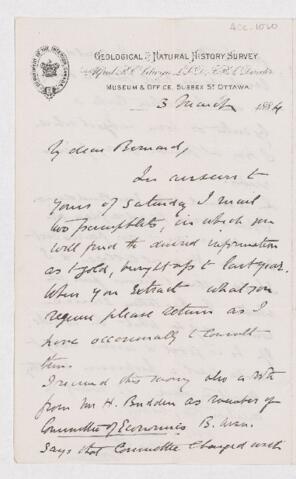 Acc. 1020
GEOLOGICAL & NATURAL HISTORY SURVEY
Alfred R. C. Selwyn, L.L.D., F.R.S. Director
MUSEUM & OFFICE, SUSSEX ST OTTAWA.
3 March 1884
My dear Bernard,
In answer to
yours of Saturday I mail
two pamphlets, in which you
will find the desired information
as to gold, brought up to last year.
When you extract what you
require please return as I
have occasionally to consult
them.
I received this morng also a
from Mr H. Budden as member of
Committee of Economics B. Assn.
Says that Committee charged with